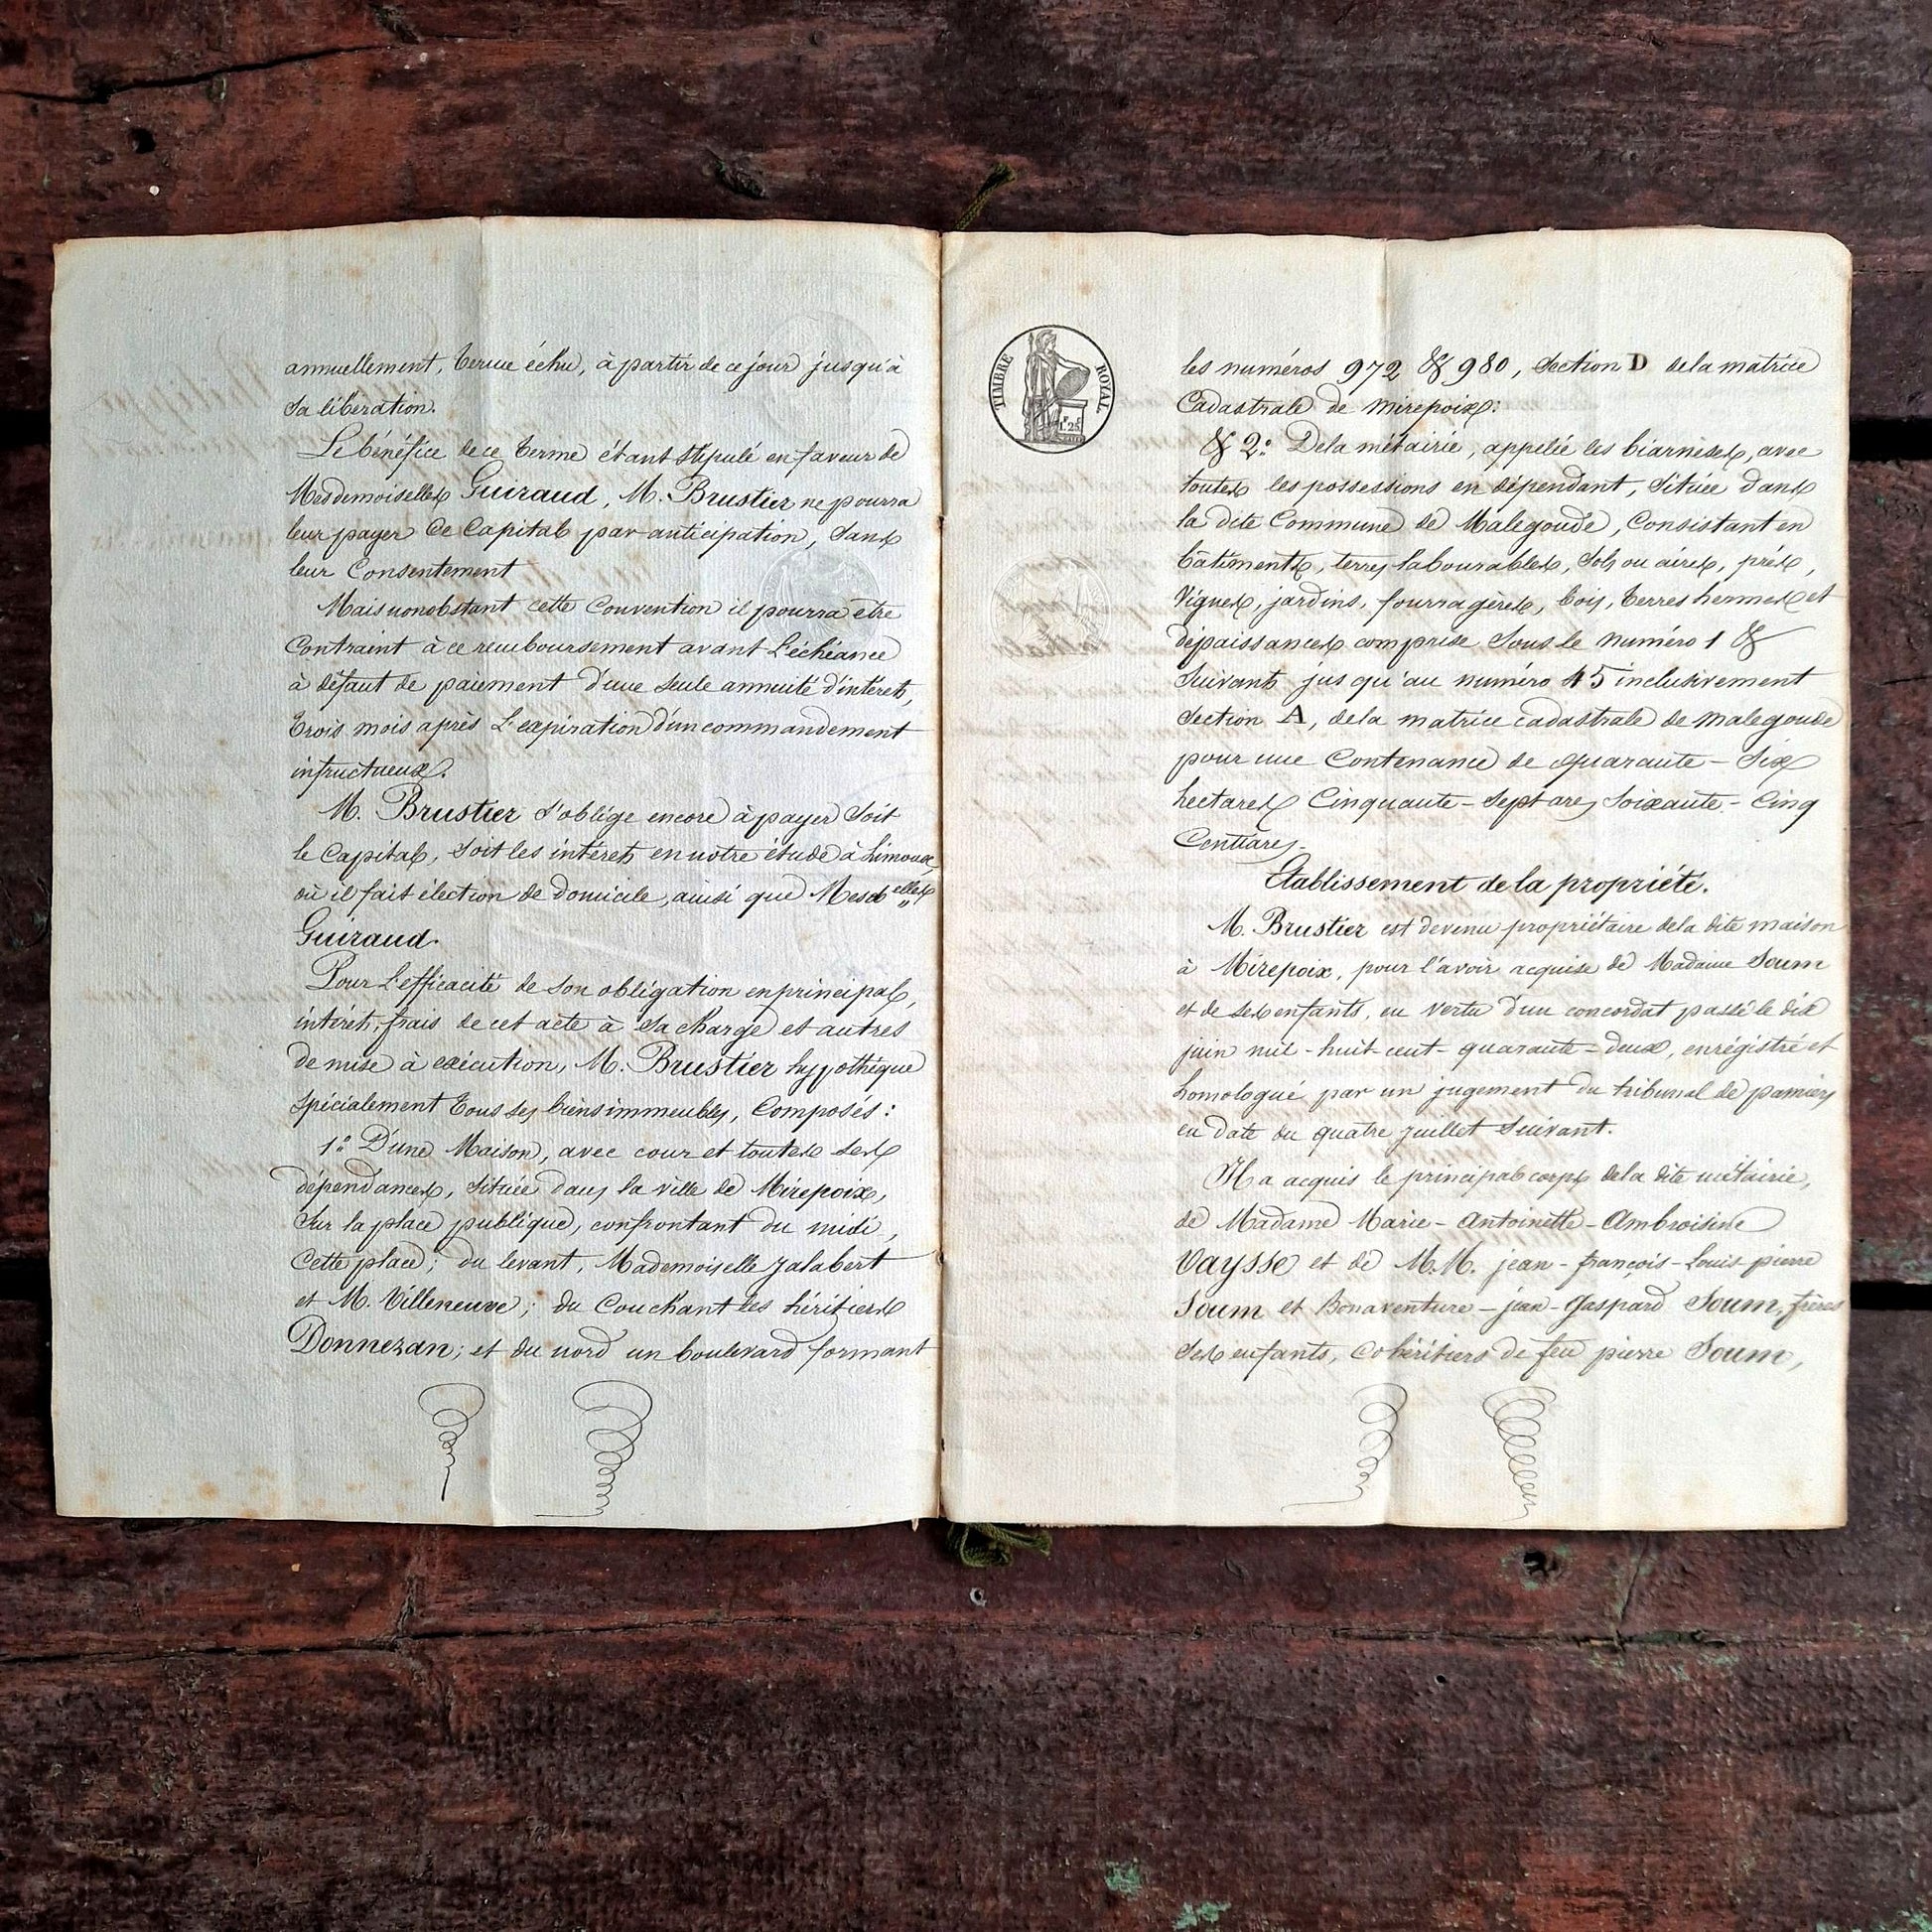 annuellement, terme échu, à partir de ce jour jusqu'à
sa libération.
Le bénéfice de ce terme étant stipulé en faveur de
Mesdemoiselles Guiraud, M. Brustier ne pourra
leur payer ce Capital par anticipation, sans
leur Consentement
Mais nonobstant cette Convention il pourra être
Contraint à ce remboursement avant L'échéance
à défaut de paiement d'une seule annuité d'intérêts,
trois mois après L'expiration d'un commandement
infructueux.
M. Brustier s'oblige encore à payer soit
le Capital, soit les intérêts en notre étude à Limoux,
où il fait élection de domicile, ainsi que Mesdelles
Guiraud.
Pour L'efficacité de son obligation en principal,
intérêt, frais de cet acte à sa charge et autres
de mise à exécution, M. Brustier hypothéque
spécialement tous ses biens immeubles, Composés :
1º D'une Maison, avec cour et toutes ses
dépendances, située dans la ville de Mirepoix,
sur la place publique, confrontant du midi,
Cette place; du levant, Mademoiselle Jalabert
et M. Villeneuve; du Couchant les héritiers
Donnezan; et du nord un boulevard formant
TIMBRE ROYAL
1.25
les numéros 972 & 980, section D de la matrice
Cadastrale de Mirepoix;
& 2º De la métairie, appelée les biarnèses, avec
toutes les possessions en dépendant, située dans
la dite Commune de Malegoude, Consistant en
bâtiments, terres labourables, sols ou aires, prés,
Vignes, jardins, fourragères, bois, terres hermes et
dépaissances comprise sous le numéro 1 &
suivants jusqu'au numéro 45 inclusivement
section A, de la matrice cadastrale de malegoude
pour une Contenance de quarante-six
hectares Cinquante-sept ares soixante-Cinq
Centiares.
Etablissement de la propriété.
M. Brustier est devenu propriétaire de la dite maison
à Mirepoix, pour l'avoir acquise de Madame Soum
et de ses enfants, en vertu d'un concordat passé le dix
juin mil-huit-cent-quarante-deux, enrégistré et
homologué par un jugement du tribunal de pamiers
en date du quatre juillet suivant.
Il a acquis le principal corps de la dite métairie,
de Madame Marie-Antoinette-Ambroisine
Vaysse et de M.M. jean-françois-Louis-pierre
Soum et Bonaventure-jean-Gaspard Soum, frères
ses enfants, Cohéritiers de feu pierre Soum,